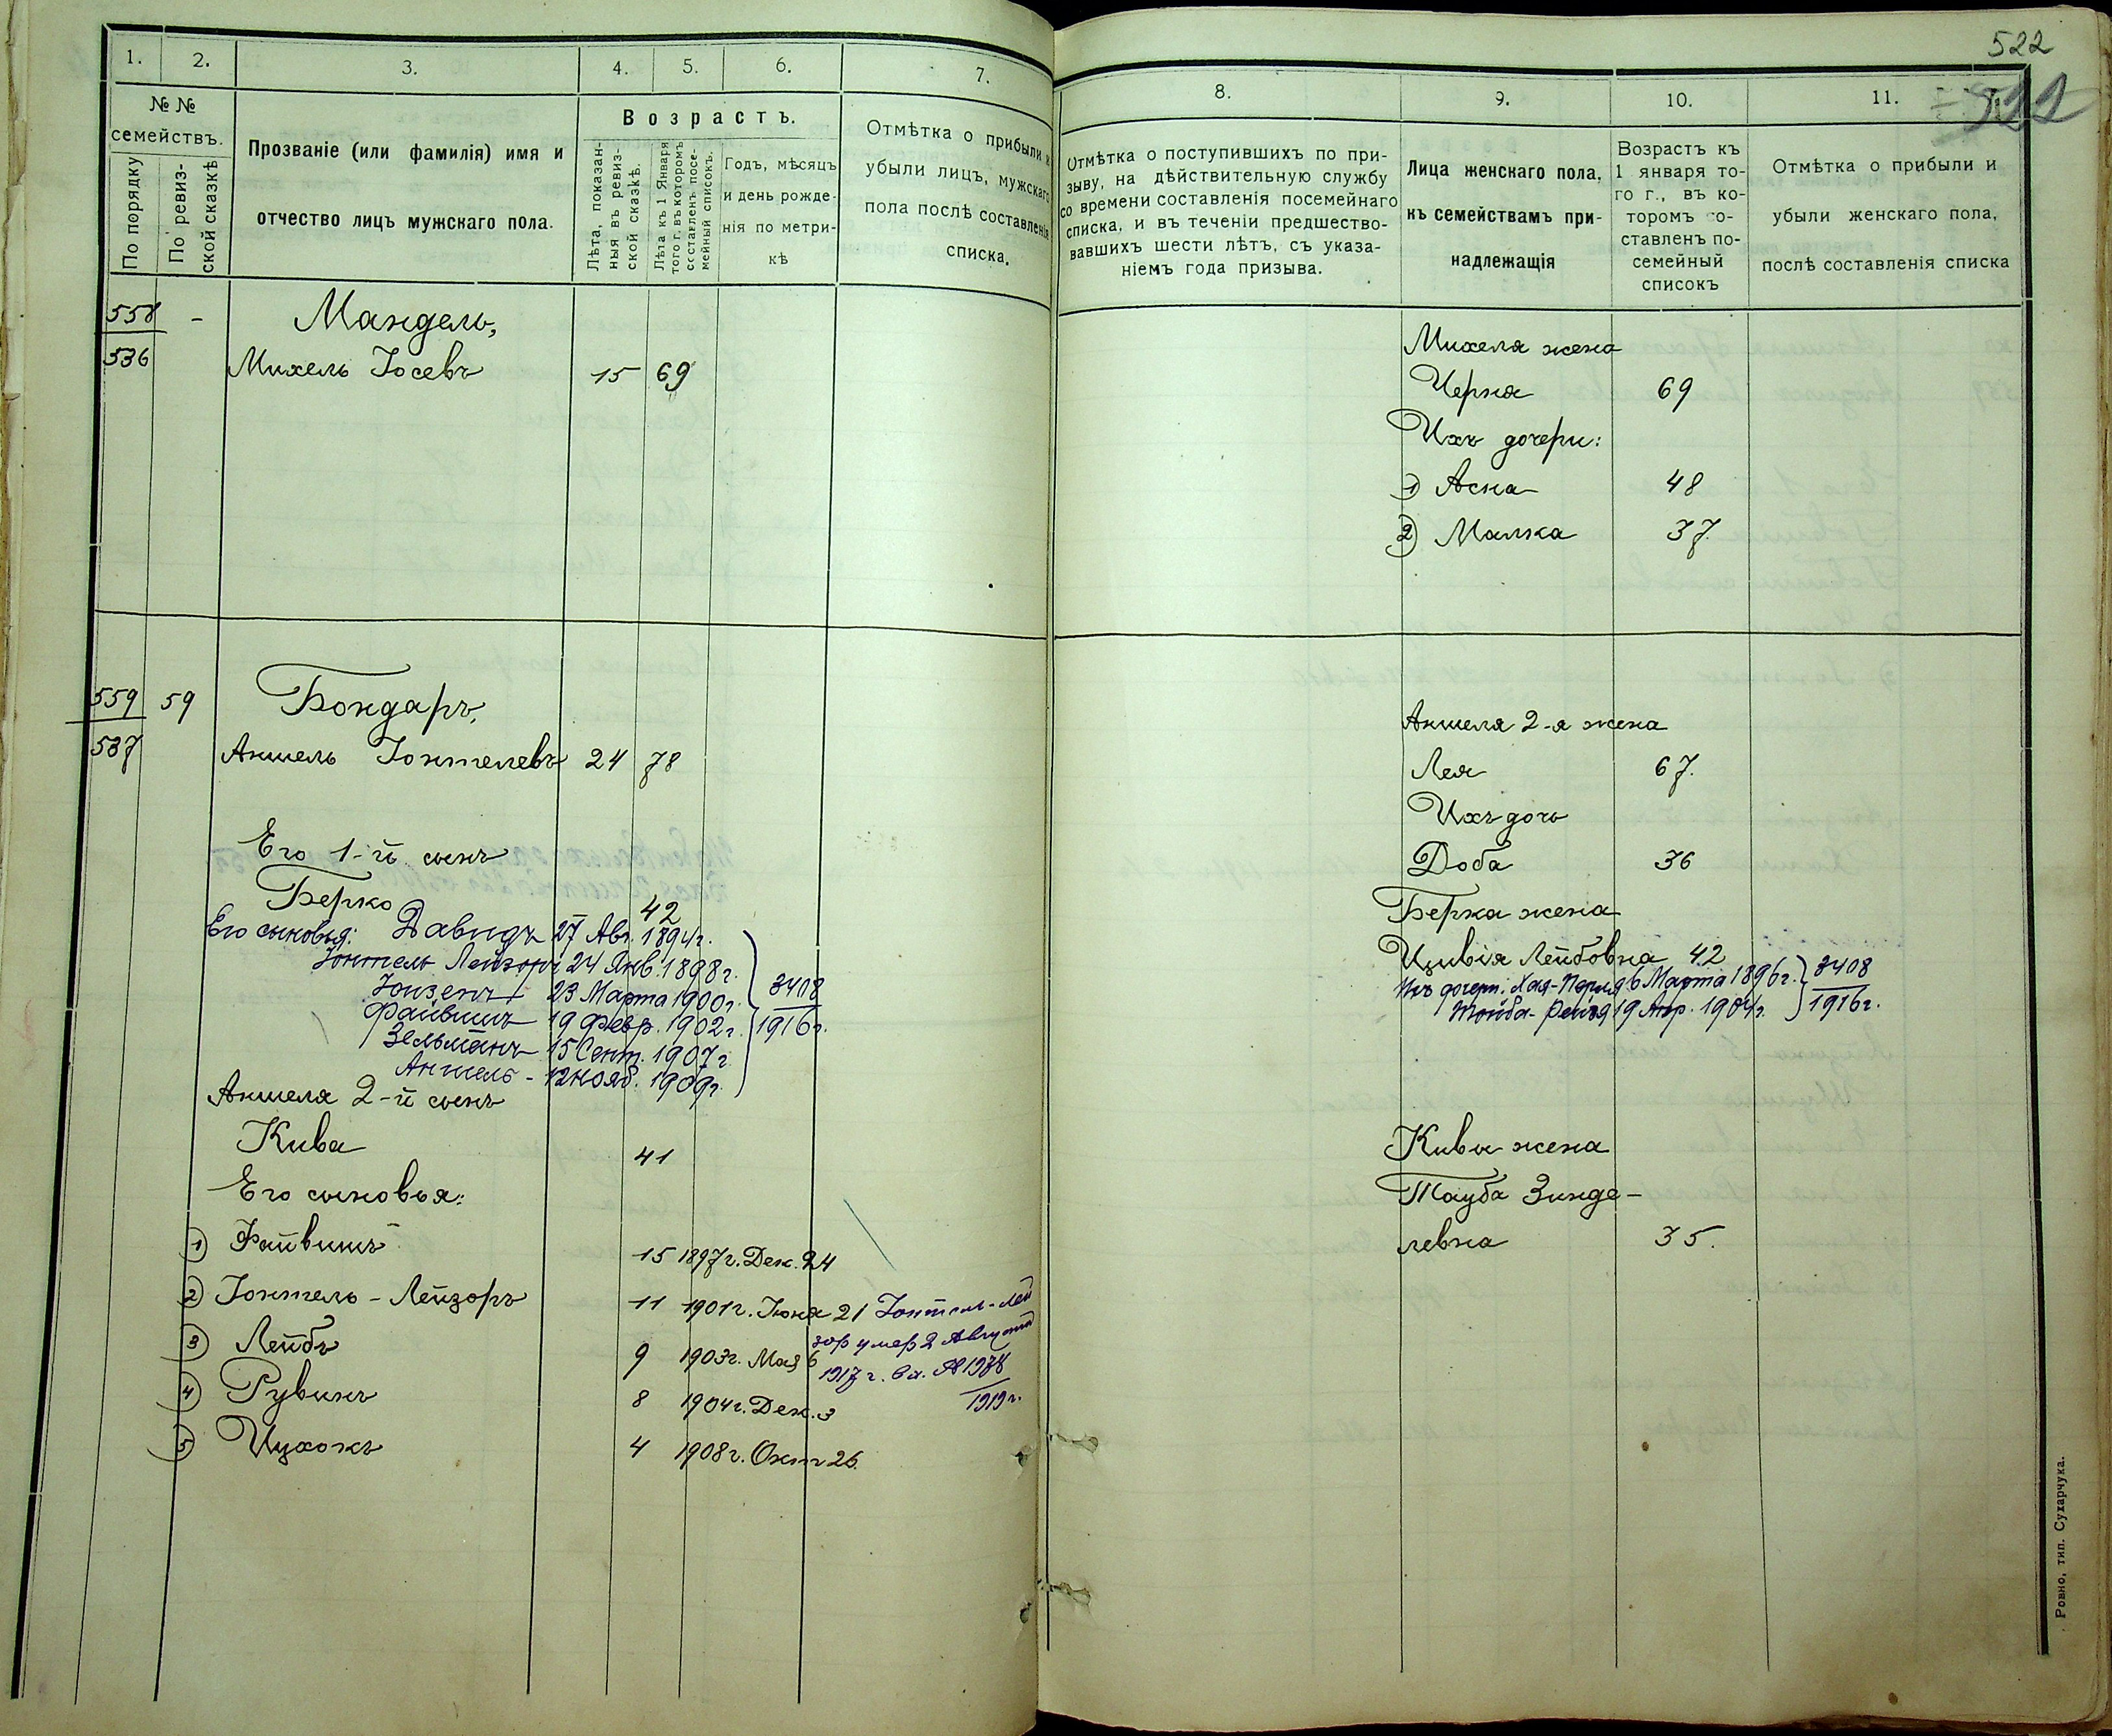 1. 2. 3. 4. 5. 6. 7.
№ № семействъ.
По порядку
По ревизской сказкѣ
Прозваніе (или фамилія) имя и
отчество лицъ мужскаго пола.
Возрастъ.
Лѣта, показан-
ныя въ ревиз-
ской сказкѣ.
Лѣта къ 1 Января
того г. въ которомъ
составленъ посе-
мейный списокъ.
Годъ, мѣсяцъ
и день рожде-
нія по метри-
кѣ
Отмѣтка о прибыли и
убыли лицъ, мужскаго
пола послѣ составленія
списка.
558 -
536
Мандель,
Михель Іосевъ 15 69
559 59
537
Бондаръ,
Аншель Іонтелевъ 24 78
Его 1-й сынъ
Берко 42
Его сыновья: Давидъ 27 Авг. 1894г.
Іонтель Лейзоръ 24 Янв. 1898г.
Іойзепъ 23 Марта 1900г.
Файвишъ 19 Февр. 1902г.
Зельманъ 15 Сент. 1907г.
Аншель - 12 Нояб. 1909г.
3408
1916г.
Аншеля 2-й сынъ
Кива 41
Его сыновья:
1) Файвишъ 15 1897г. Дек. 24
2) Іонтель - Лейзоръ 11 1901г. Іюня 21
3) Лейбъ 9 1903г. Мая 6
4) Рувинъ 8 1904г. Дек. 3
5) Ицхокъ 4 1908г. Окт 26.
Іонтель-Лей
зор умер 2 Августа
1917 г.
1919г.
522
522
8. 9. 10. 11.
Отмѣтка о поступившихъ по при-
зыву, на дѣйствительную службу
со времени составленія посемейнаго
списка, и въ теченіи предшество-
вавшихъ шести лѣтъ, съ указа-
ніемъ года призыва.
Лица женскаго пола,
къ семействамъ при-
надлежащія
Возрастъ къ
1 января то-
го г., въ ко-
торомъ со-
ставленъ по-
семейный
списокъ
Отмѣтка о прибыли и
убыли женскаго пола,
послѣ составленія списка
Михеля жена
Черня 69
Ихъ дочери:
1) Асна 48
2) Малка 37.
Аншеля 2-я жена
Лея 67.
Ихъ дочь
Доба 36
Берка жена
Цивія Лейбовна 42
Ихъ дочери: Хая-Перля 6 Марта 1896г.
Тойба-Рейзя 19 Апр. 1904г.
3408
1916г.
Кивы жена
Тауба Зинде-
левна 35.
Ровно, тип. Сухарчука.